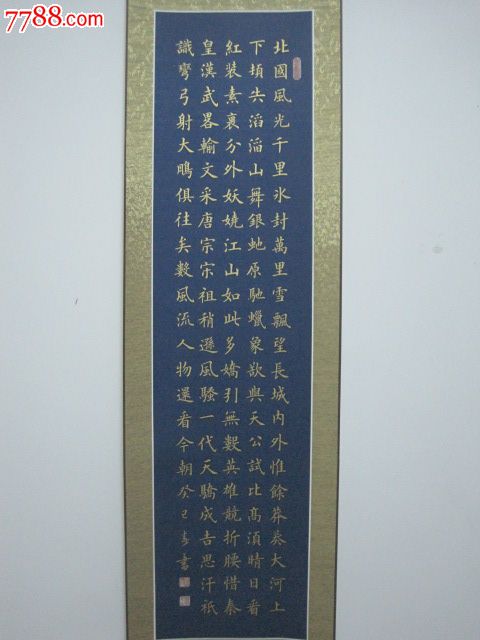 7788.com
北國風光千里冰封萬里雪飄望長城内外惟餘莽莽大河上
下頓失滔滔山舞銀蛇原馳蠟象欲與天公試比高須晴日看
紅裝素裹分外妖嬈江山如此多嬌引無數英雄競折腰惜秦
皇漢武畧輸文采唐宗宋祖稍遜風騷一代天驕成吉思汗衹
識彎弓射大鵰俱往矣數風流人物還看今朝癸巳春書